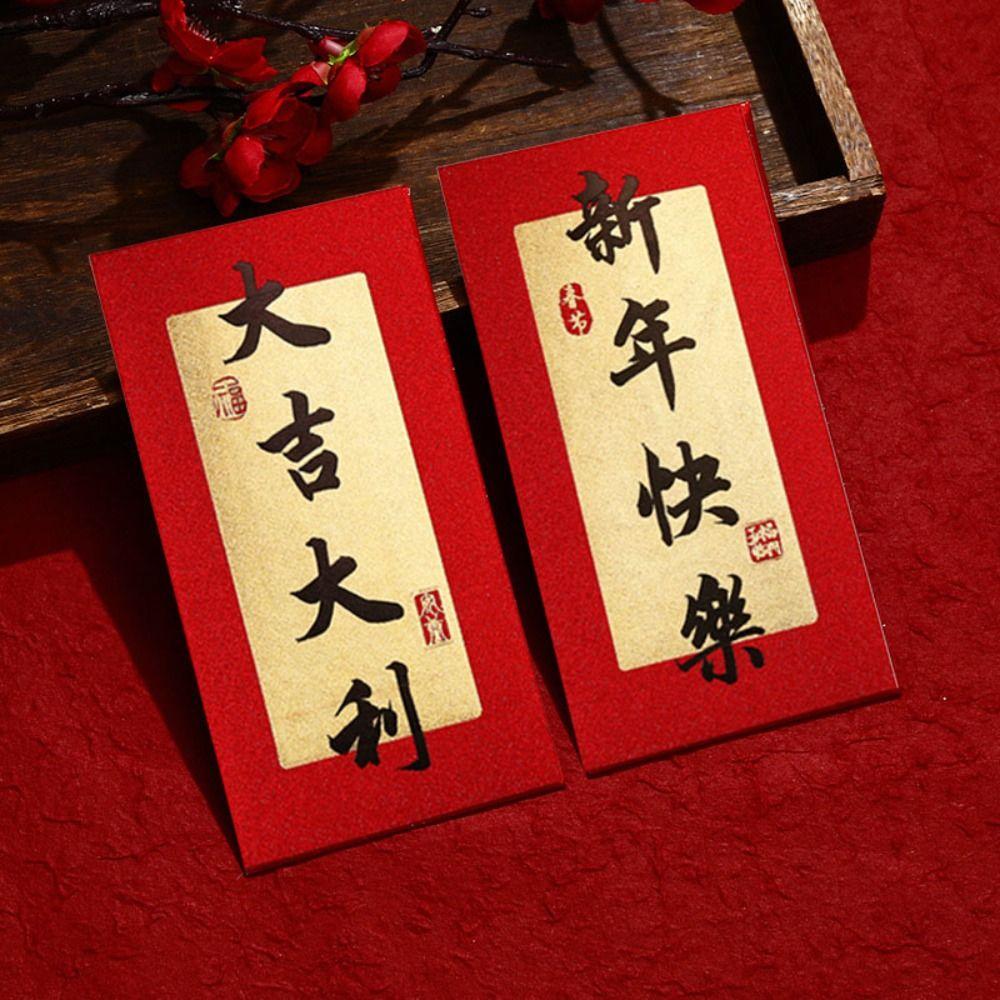 大吉大利
福
新年快樂
春节